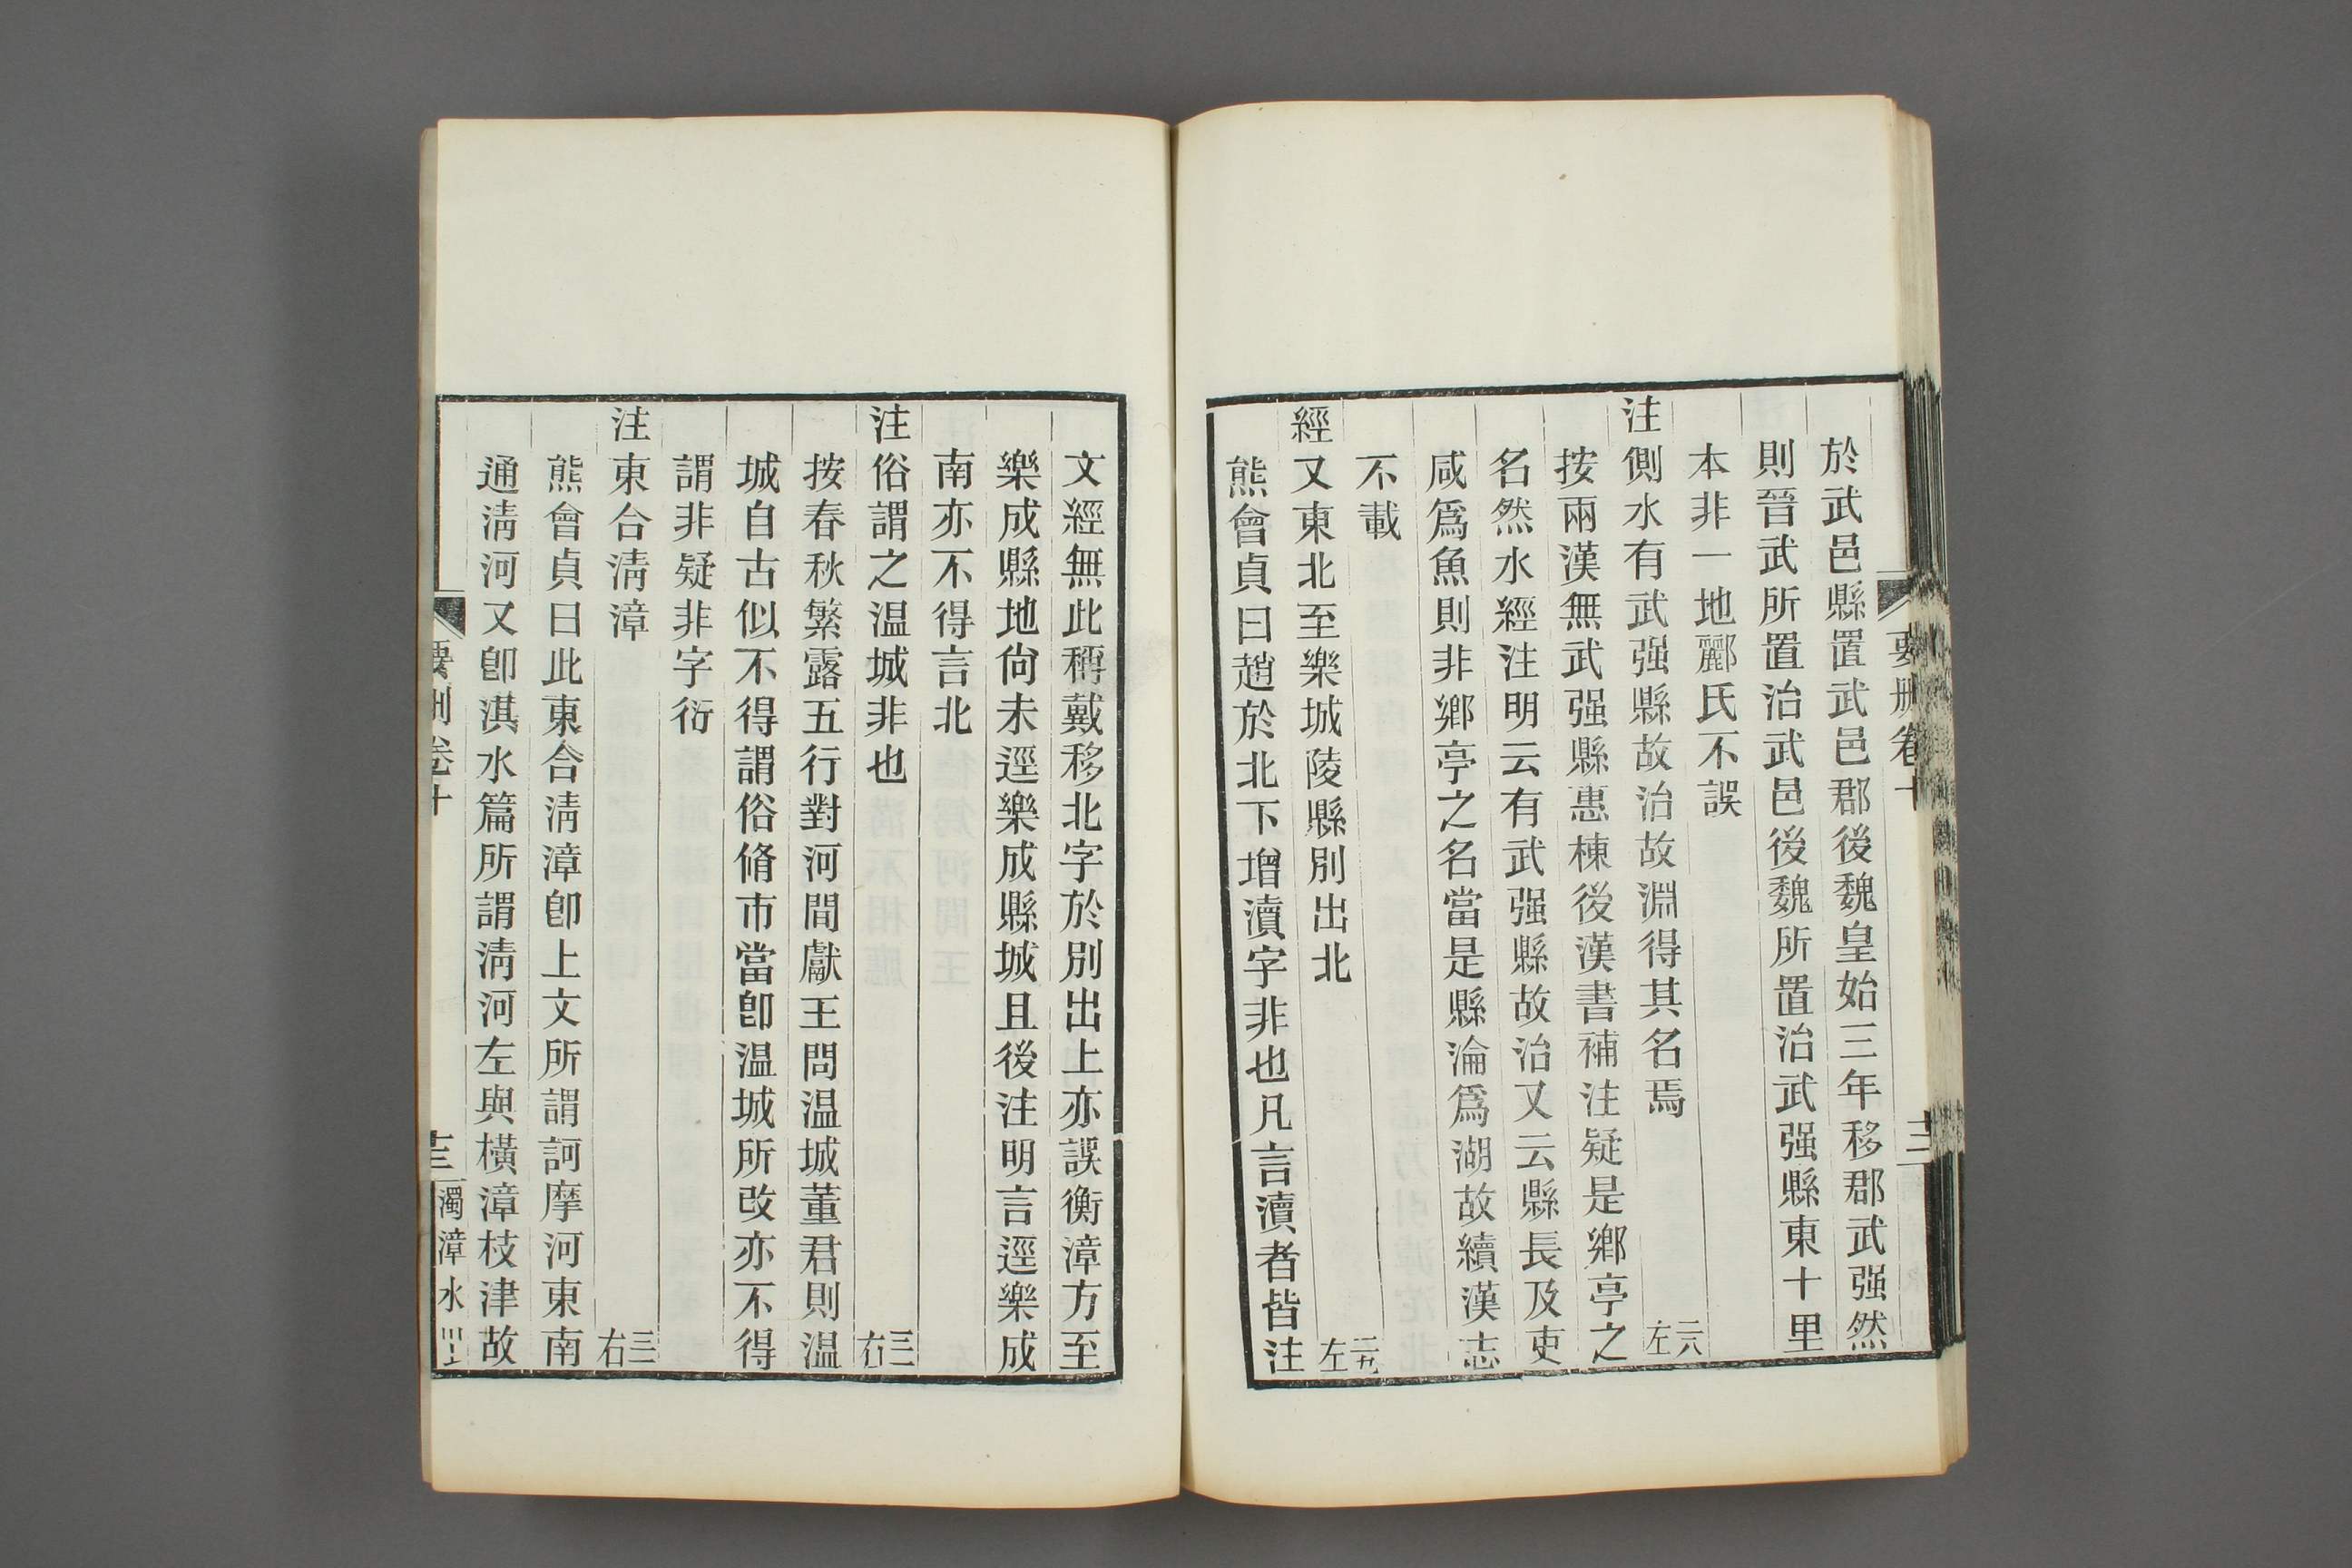 於武邑縣置武邑郡後魏皇始三年移郡武强然
則晉武所置治武邑後魏所置治武强縣東十里
本非一地酈氏不誤
注側水有武强縣故治故淵得其名焉 二六左
按兩漢無武强縣惠棟後漢書補注疑是鄉亭之
名然水經注明云有武强縣故治又云縣長及吏
咸爲魚則非鄉亭之名當是縣淪爲湖故續漢志
不載
經又東北至樂城陵縣別出北 二九左
熊會貞曰趙於北下增瀆字非也凡言瀆者皆注
文經無此稱戴移北字於別出上亦誤衡漳方至
樂成縣地尙未逕樂成縣城且後注明言逕樂成
南亦不得言北
注俗謂之温城非也 三二右
按春秋繁露五行對河間獻王問温城董君則温
城自古似不得謂俗脩市當卽温城所改亦不得
謂非疑非字衍
注東合淸漳 三三右
熊會貞曰此東合淸漳卽上文所謂訶摩河東南
通淸河又卽淇水篇所謂淸河左與橫漳枝津故
要刪卷十
三
要刪卷十
三 濁漳水